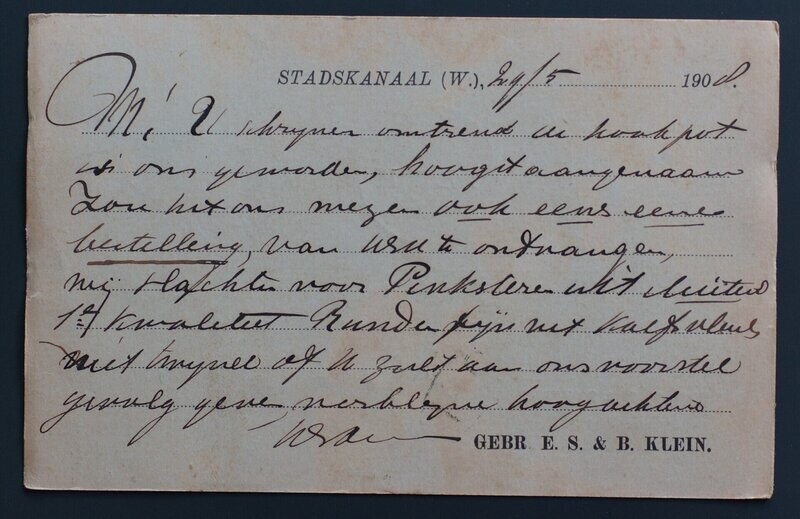 STADSKANAAL (W.), 29/5 1908.
M! U schrijven omtrend de kookpot
is ons geworden, hoogst aangenaam
zou het ons mogen ook eens eene
bestelling, van U te ondvangen,
wij slachten voor Pinksteren uit
1e kwaliteit Runderen fijn vet kalfsvleesch
niet twijfel of U zult aan ons voorstel
gevolg geven, verblijve hoogachtend
GEBR. E. S. & B. KLEIN.